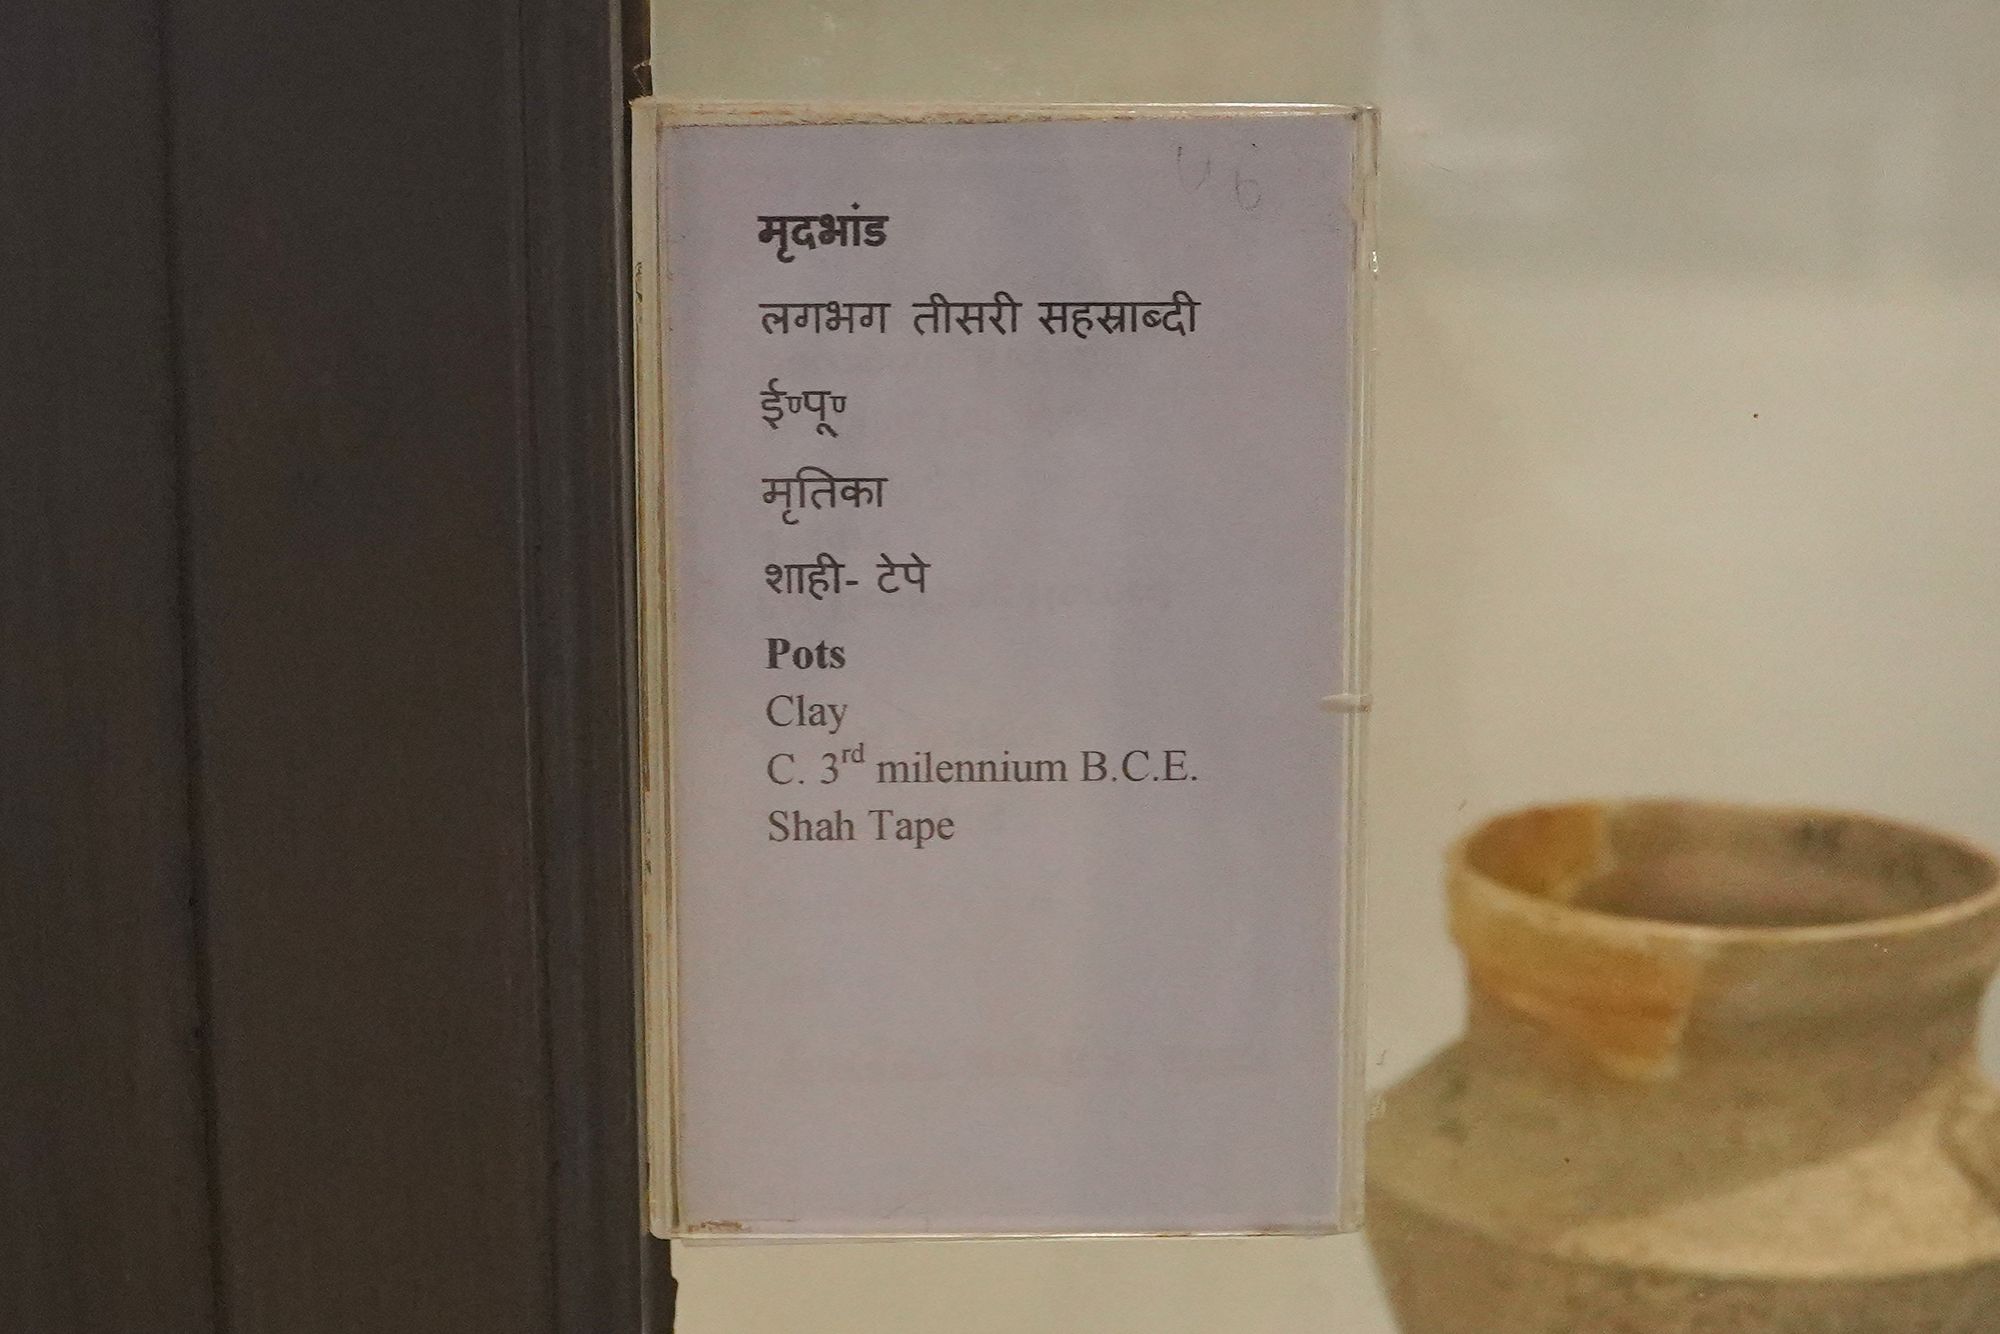 मृदभांड
लगभग तीसरी सहस्राब्दी
ई॰पू॰
मृतिका
शाही- टेपे
Pots
Clay
C. 3rd milennium B.C.E.
Shah Tape